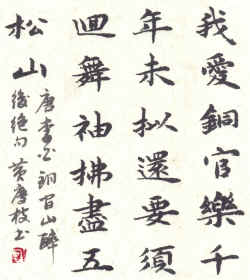 我愛銅官樂千
年未擬還要須
迴舞袖拂盡五
松山
唐李白銅官山醉
後絕句 黃慶枝书